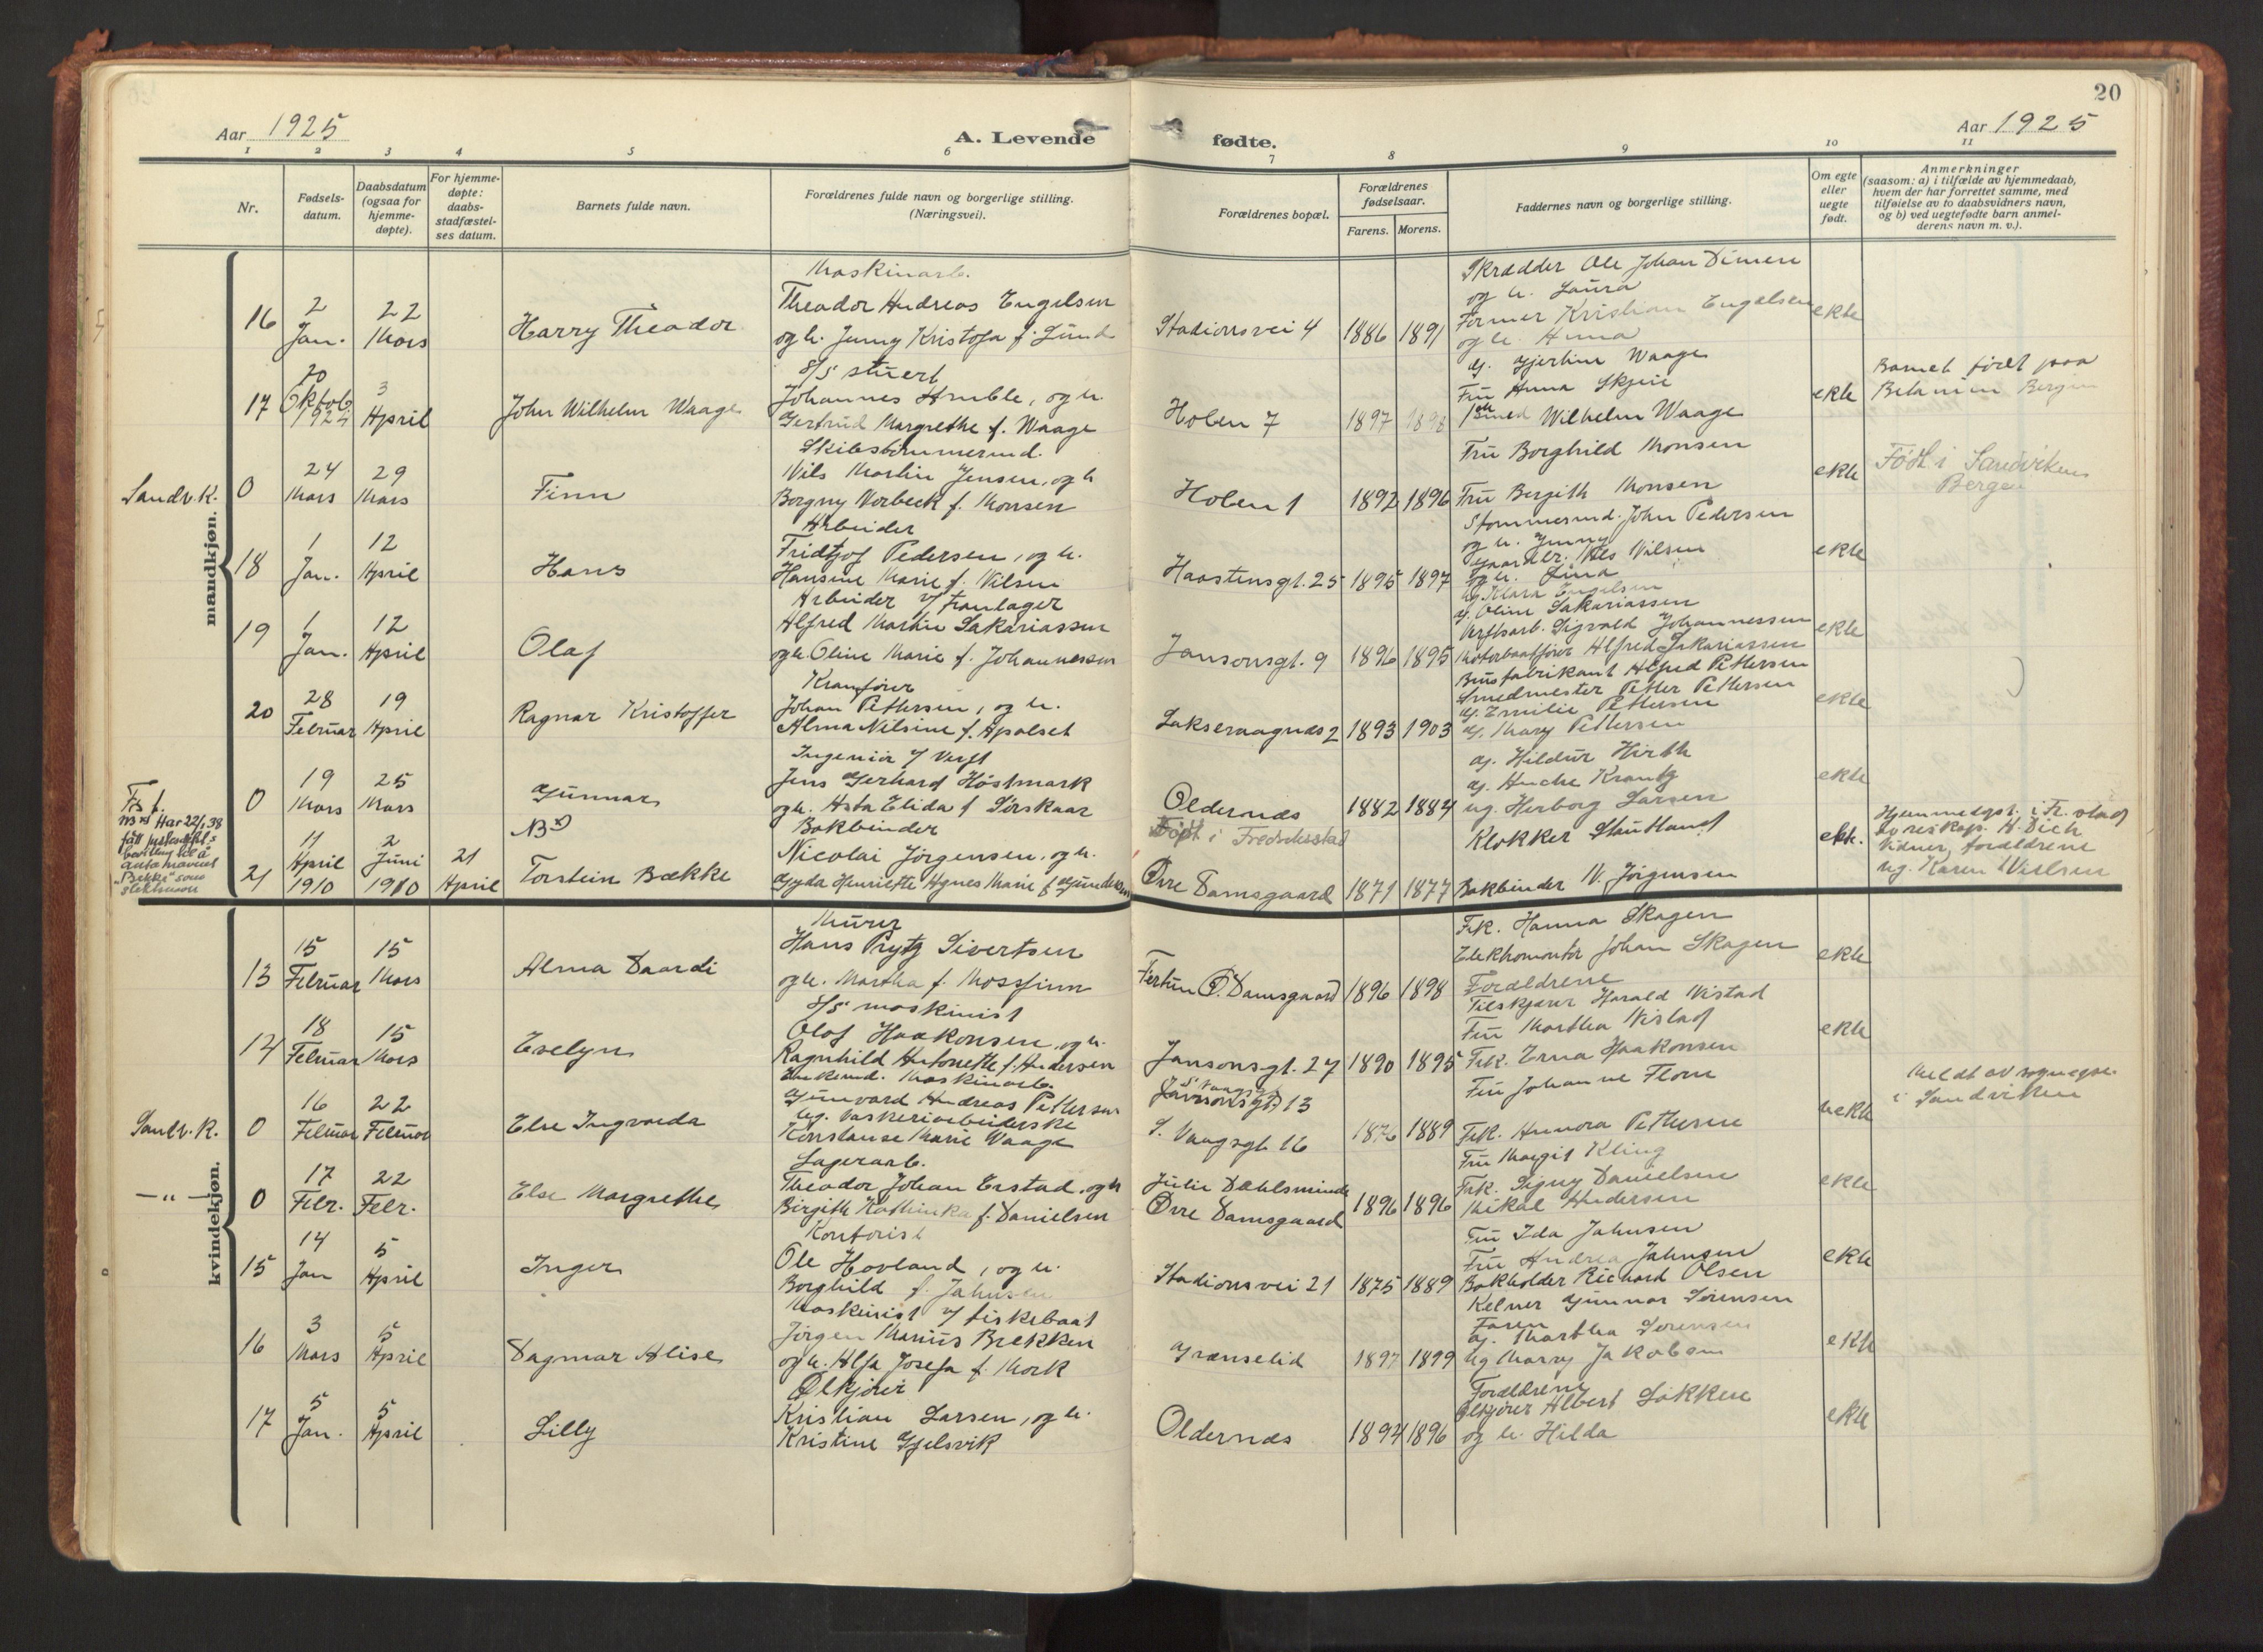 20
Aar 1925
A. Levende fødte.
Aar 1925
1 2 3 4 5 6 7 8 9 10 11
Nr.
Fødsels-
datum.
Daabsdatum
(ogsaa for
hjemme-
døpte).
For hjemme-
døpte:
daabs-
stadfæstel-
ses datum.
Barnets fulde navn.
Forældrenes fulde navn og borgerlige stilling.
(Næringsvei).
Forældrenes bopæl.
Forældrenes
fødselsaar.
Farens. Morens.
Faddernes navn og borgerlige stilling.
Om egte
eller
uegte
født.
Anmerkninger
(saasom: a) i tilfælde av hjemmedaab,
hvem der har forrettet samme, med
tilføielse av to daabsvidners navn,
og b) ved uegtefødte barn anmel-
derens navn m. v.).
mandkjøn.
16
2
Jan.
22
Mars
Harry Theodor
Maskinarb.
Theodor Andreas Engelsen
og h. Jenny Kristofa f. Lund
Stadionsvei 4
1886 1891
Skrædder Ole Johan Dimen
og h. Laura
Former Kristian Engelsen
og h. Anna
ekte
17
20
Oktob
1924
3
April
John Wilhelm Waage
S/S stuert
Johannes Amble, og h.
Gertrud Margrethe f. Waage
Holen 7
1897 1898
Gjertine Waage
Fru Anna
Wilhelm Waage
ekte
Barnet født paa
Betanien Bergen
Sandv. K.
0
24
Mars
29
Mars
Finn
Skibstømmermd.
Nils Martin Jensen, og h
Borgny Vorbeck f. Monsen
Holen 1
1892 1896
Fru Borghild Monsen
Fru Bergith Monsen
ekte
Født i Sandviken
Bergen
18
1
Jan.
12
April
Hans
Arbeider
Fridtjof Pedersen, og h.
Hansine Marie f. Nilsen
Haastensgt. 25
1895 1897
Tømmermd. John Pedersen
og h. Jenny
Nils Nilsen
og h. Lina
ekte
19
1
Jan.
12
April
Olaf
Arbeider v/ tranlager
Alfred Martin Sakariassen
og h. Oline Marie f. Johannessen
Jansonsgt. 9
1896 1895
Ug. Klara Engelsen
Oline Sakariassen
Verftsarb. Sigvald Johannessen
Motorbaatfører Alfred Sakariassen
ekte
20
28
Februar
19
April
Ragnar Kristoffer
Kranfører
Johan Pettersen, og h.
Alma Nilsine f. Apalset
Laksevaagnæs 2
1893 1903
Brusfabrikant Alfred Pettersen
Smedmester Petter Pettersen
Emilie Pettersen
Mary Pettersen
ekte
0
19
Mars
25
Mars
Gunnar
Ingeniør v/ Verft
Jens Gerhard Høstmark
og h. Asta Elida f. Sørskaar
Oldernæs
1882 1884
Hildur Hirth
Krantz
ug. Herborg Larsen
ekte
Har 22/1 38
"Bekke" som
slektsnavn
NB
21
11
April
1910
2
Juni
1910
21
April
Torstein Bække
Bokbinder
Nicolai Jørgensen, og h.
Gyda Henriette Agnes Marie f. Gundersen
Født i Fredrikstad
Øvre Damsgaard
1871 1877
Klokker Stautland
Bokbinder N. Jørgensen
ekte.
Hjemmedøpt. i Fr. stad
av reskap. H. Dick
Vidner, forældrene
ug. Karen Nielsen
kvindekjøn.
13
15
Februar
15
Mars
Alma Daardi
Murer
Hans Prytz Sivertsen
og h. Martha f. Mossfinn
Damsgaard
1896 1898
Frk. Hanna Skagen
Elektromontør Johan Skagen
Forældrene
ekte
14
18
Februar
15
Mars
Evelyn
S/S maskinist
Olaf Haakonsen, og h.
Ragnhild Antonette f. Andersen
Jansonsgt. 27
1890 1895
Tilskjærer Harald Wistad
Fru Martha Wistad
Frk. Erna Haakonsen
ekte
Sandv. K.
0
16
Februar
22
Februar
Else Ingvarda
Enkemd. Maskinarb.
Gunvard Andreas Pettersen
Ug. Vaskeriarbeiderske
Konstanse Marie Waage
13
S. Vaagsgt. 16
1876 1889
Fru Johanne Flom
Frk. Annora Pettersen
uekte
Meldt av sognepr.
i Sandviken
—"—
0
17
Febr.
22
Febr.
Else Margrethe
Lagerarb.
Theodor Johan Erstad, og h
Birgith Kathinka f. Danielsen
Julie Dahlsminde
Øvre Damsgaard
1896 1896
Fru Margit Kling
Frk. Signy Danielsen
Mikal Andersen
ekte
15
14
Jan
5
April
Inger
Kontorist
Ole Hovland, og h.
Borghild f. Jahnsen
Stadionsvei 21
1875 1889
Fru Ida Jahnsen
Fru Andrea Jahnsen
Bokholder Richard Olsen
ekte
16
3
Mars
5
April
Dagmar Alise
Maskinist v/ fiskebaat
Jørgen Marius Brekken
og h. Alfa Josefa f. Mork
Grænselid
1897 1899
Kelner Gunnar Sørensen
Faren
Martha Sørensen
Ug Marry Jakobsen
ekte
17
5
Jan.
5
April
Lilly
Ølkjører
Kristian Larsen, og h.
Kristine Gjelsvik
Oldernæs
1894 1896
Forældrene
Ølkjører Albert Løkken
og h. Hilda
ekte